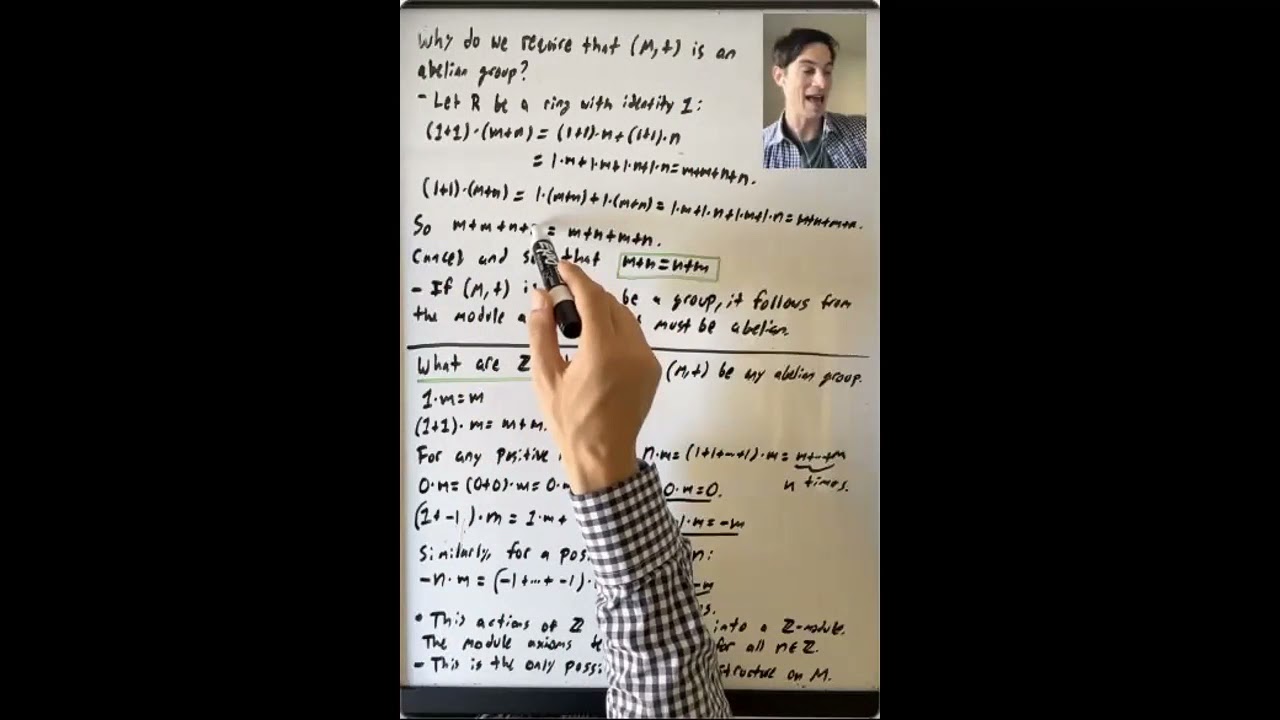 Why do we require that (M,+) is an
abelian group?
- Let R be a ring with identity 1:
(1+1)·(m+n) = (1+1)·m+(1+1)·n
= 1·m+1·m+1·n+1·n=m+m+n+n.
(1+1)·(m+n) = 1·(m+n)+1·(m+n) = 1·m+1·n+1·m+1·n = m+n+m+n.
So m+m+n+ = m+n+m+n.
Cancel and s that m+n=n+m
- If (M,+) is be a group, it follows from
the module a s must be abelian.
What are Z (M,+) be any abelian group.
1·m=m
(1+1)·m= m+m.
For any positive n·m=(1+1+...+1)·m = m+...+m
n times.
0·m=(0+0)·m=0·m 0·m=0.
(1+-1)·m = 1·m+ 1·m=-m
Similarly, for a pos n:
-n·m = (-1+...+-1)· -m
s.
• This actions of Z into a Z-module.
The module axioms for all n∈Z.
- This is the only poss structure on M.